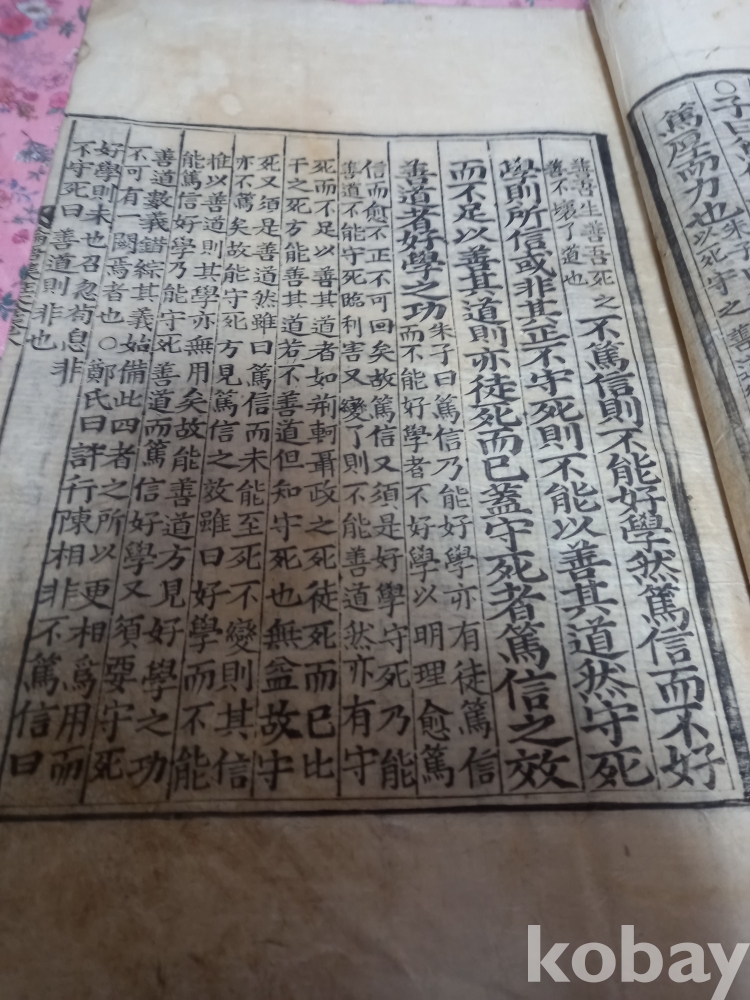 ○子曰
篤厚而力也
以死守之
善吾生善吾死之
善不壞了道也
不篤信則不能好學然篤信而不好
學則所信或非其正不守死則不能以善其道然守死
而不足以善其道則亦徒死而已蓋守死者篤信之效
善道者好學之功
朱子曰篤信乃能好學亦有徒篤信
而不能好學者不好學以明理愈篤
信而愈不正不可回矣故篤信又須是好學守死乃能
善道不能守死臨利害又變了則不能善道然亦有守
死而不足以善其道者如荊軻聶政之死徒死而已比
干之死方能善其道若不善道但知守死也無益故守
死又須是善道然雖曰篤信而未能至死不變則其信
亦不篤矣故能守死方見篤信之效雖曰好學而不能
推以善道則其學亦無用矣故能善道方見好學之功
能篤信好學乃能守死善道而篤信好學又須要守死
善道數義錯綜其義始備此四者之所以更相爲用而
不可有一闕焉者也○鄭氏曰許行陳相非不篤信曰
好學則未也召忽荀息非
不守死曰善道則非也
kobay